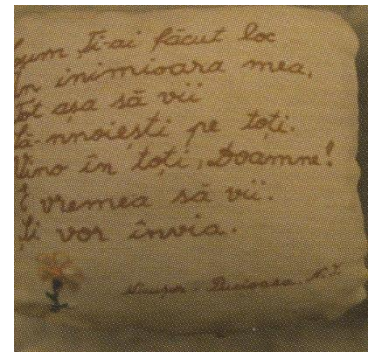 cum Ți-ai făcut loc
în inimioara mea,
tot așa să vii
să-nnoiești pe toți.
Vino în toți, Doamne!
E vremea să vii.
Și vor învia.